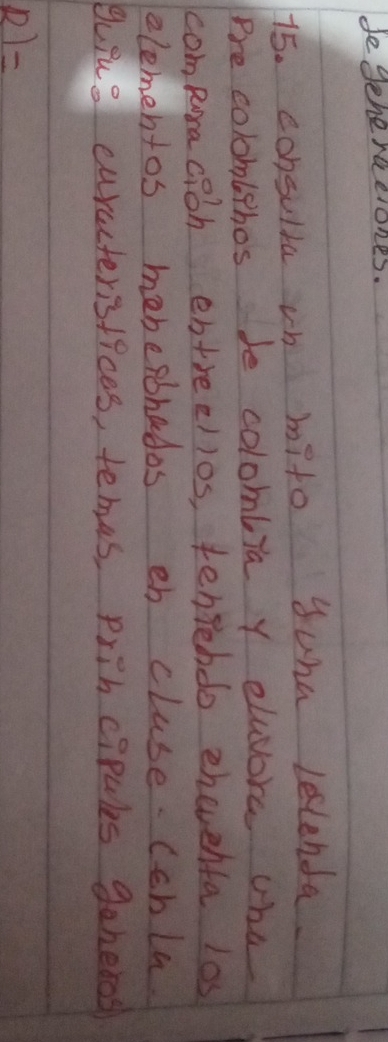 de generaciones.
15. consulta un mito y una leyenda.
Pre colombinos de colombia y elavora una
comparación entre ellos, teniendo encuenta los
elementos mencionados en clase. (en la
guiu: caracteristicas, temas, principales generos)
R)=